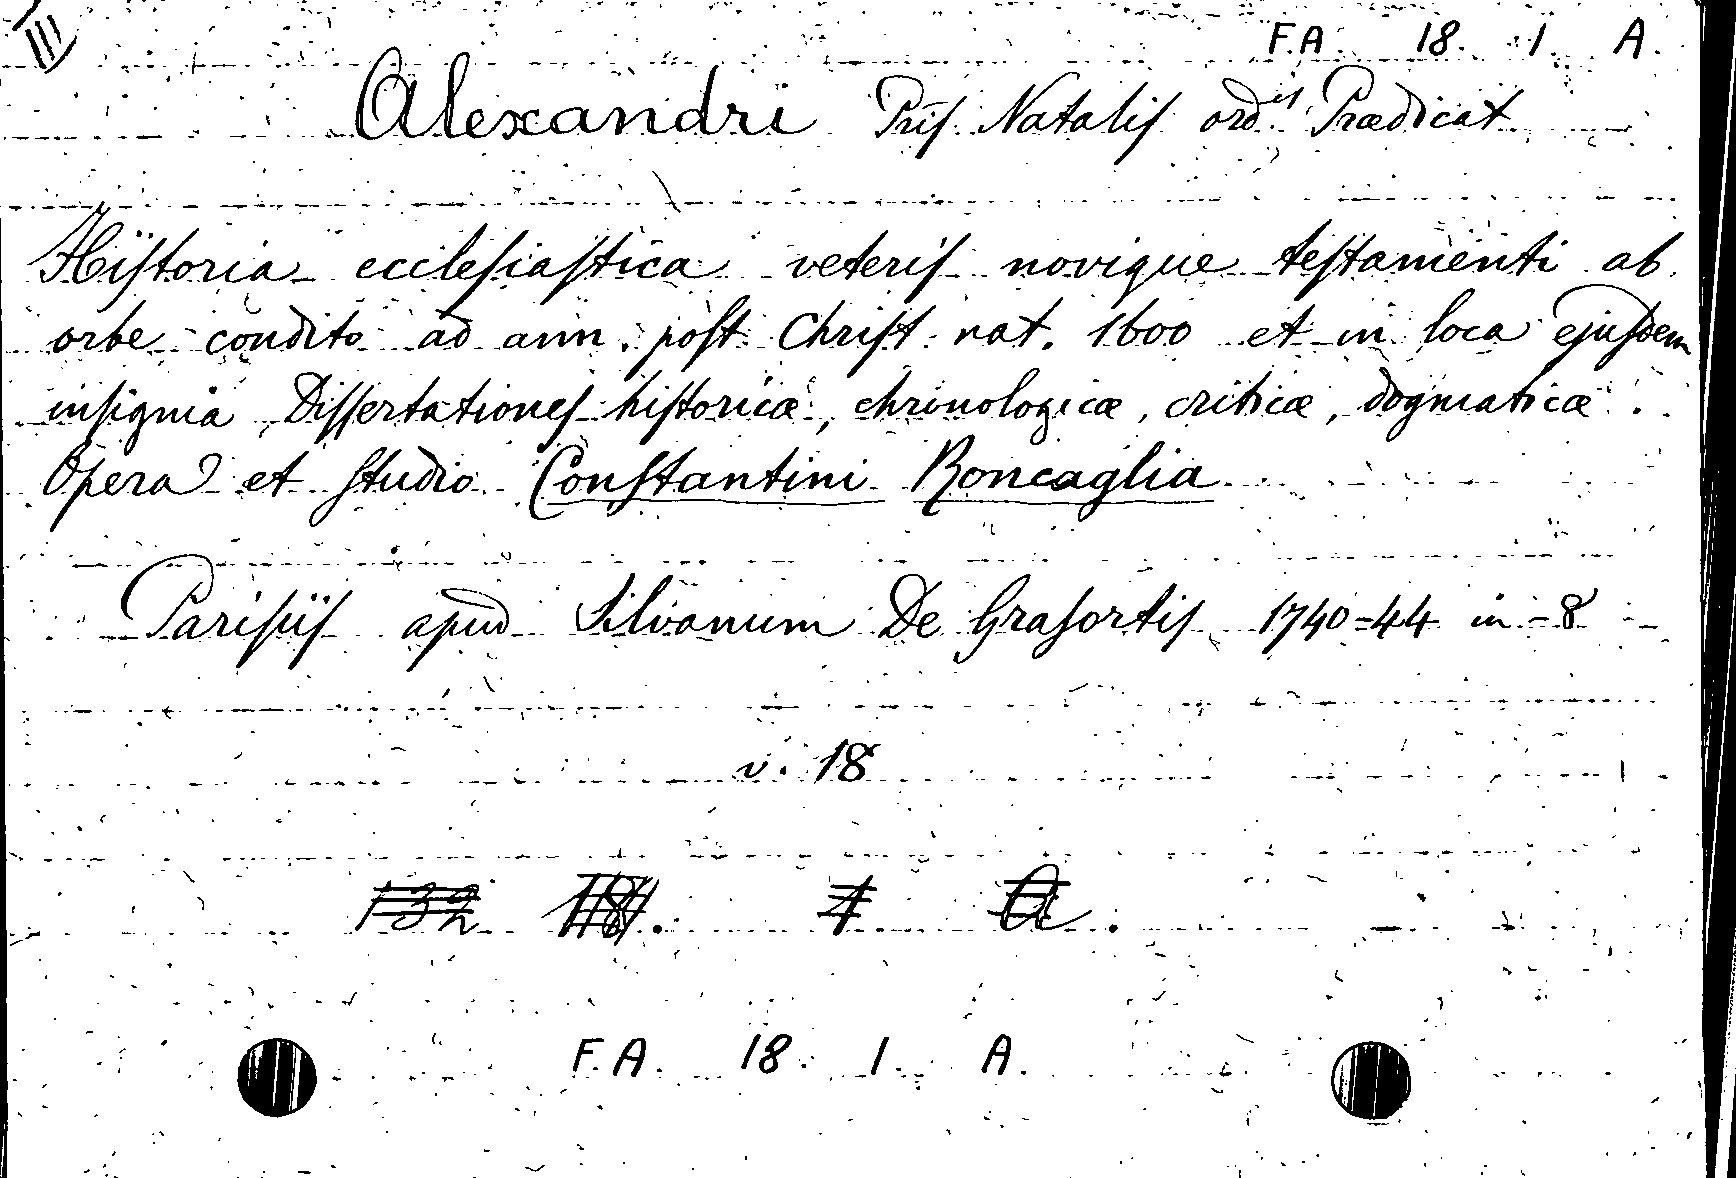 III
F.A. 18. 1. A.
Alexandri Pris Natalis ord.is Prædicat
Historia ecclesiastica veteris novique testamenti ab
orbe condito ad ann. post Christ. nat. 1600 et in loca ejusdem
insignia Dissertationes historicæ, chronologicæ, criticæ, dogmaticæ.
Opera et studio Constantini Roncaglia
Parisiis apud Silvanum De Grasortis 1740=44 in-8
v. 18
132 18. 1 A.
F.A. 18. 1. A.